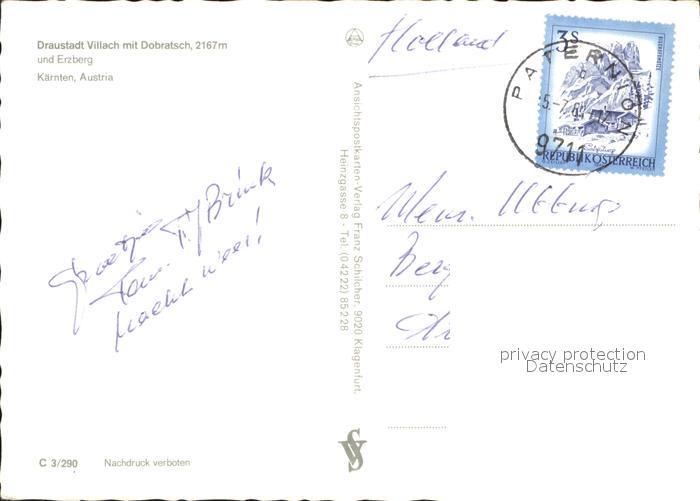 Draustadt Villach mit Dobratsch, 2167m
und Erzberg
Kärnten, Austria
Holland
3S
REPUBLIK ÖSTERREICH
PATERNION
9711
Ansichtspostkarten-Verlag Franz Schilcher, 9020 Klagenfurt,
Heinzgasse 8 - Tel. (04222) 85228
Groetjes
Fam. Brink
Macht weer!
privacy protection
Datenschutz
C 3/290
Nachdruck verboten